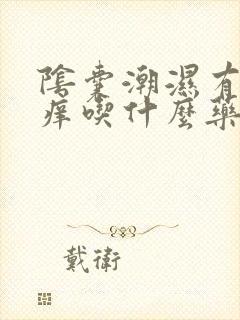 陰囊潮濕有
痒喫什麽藥
戴衛